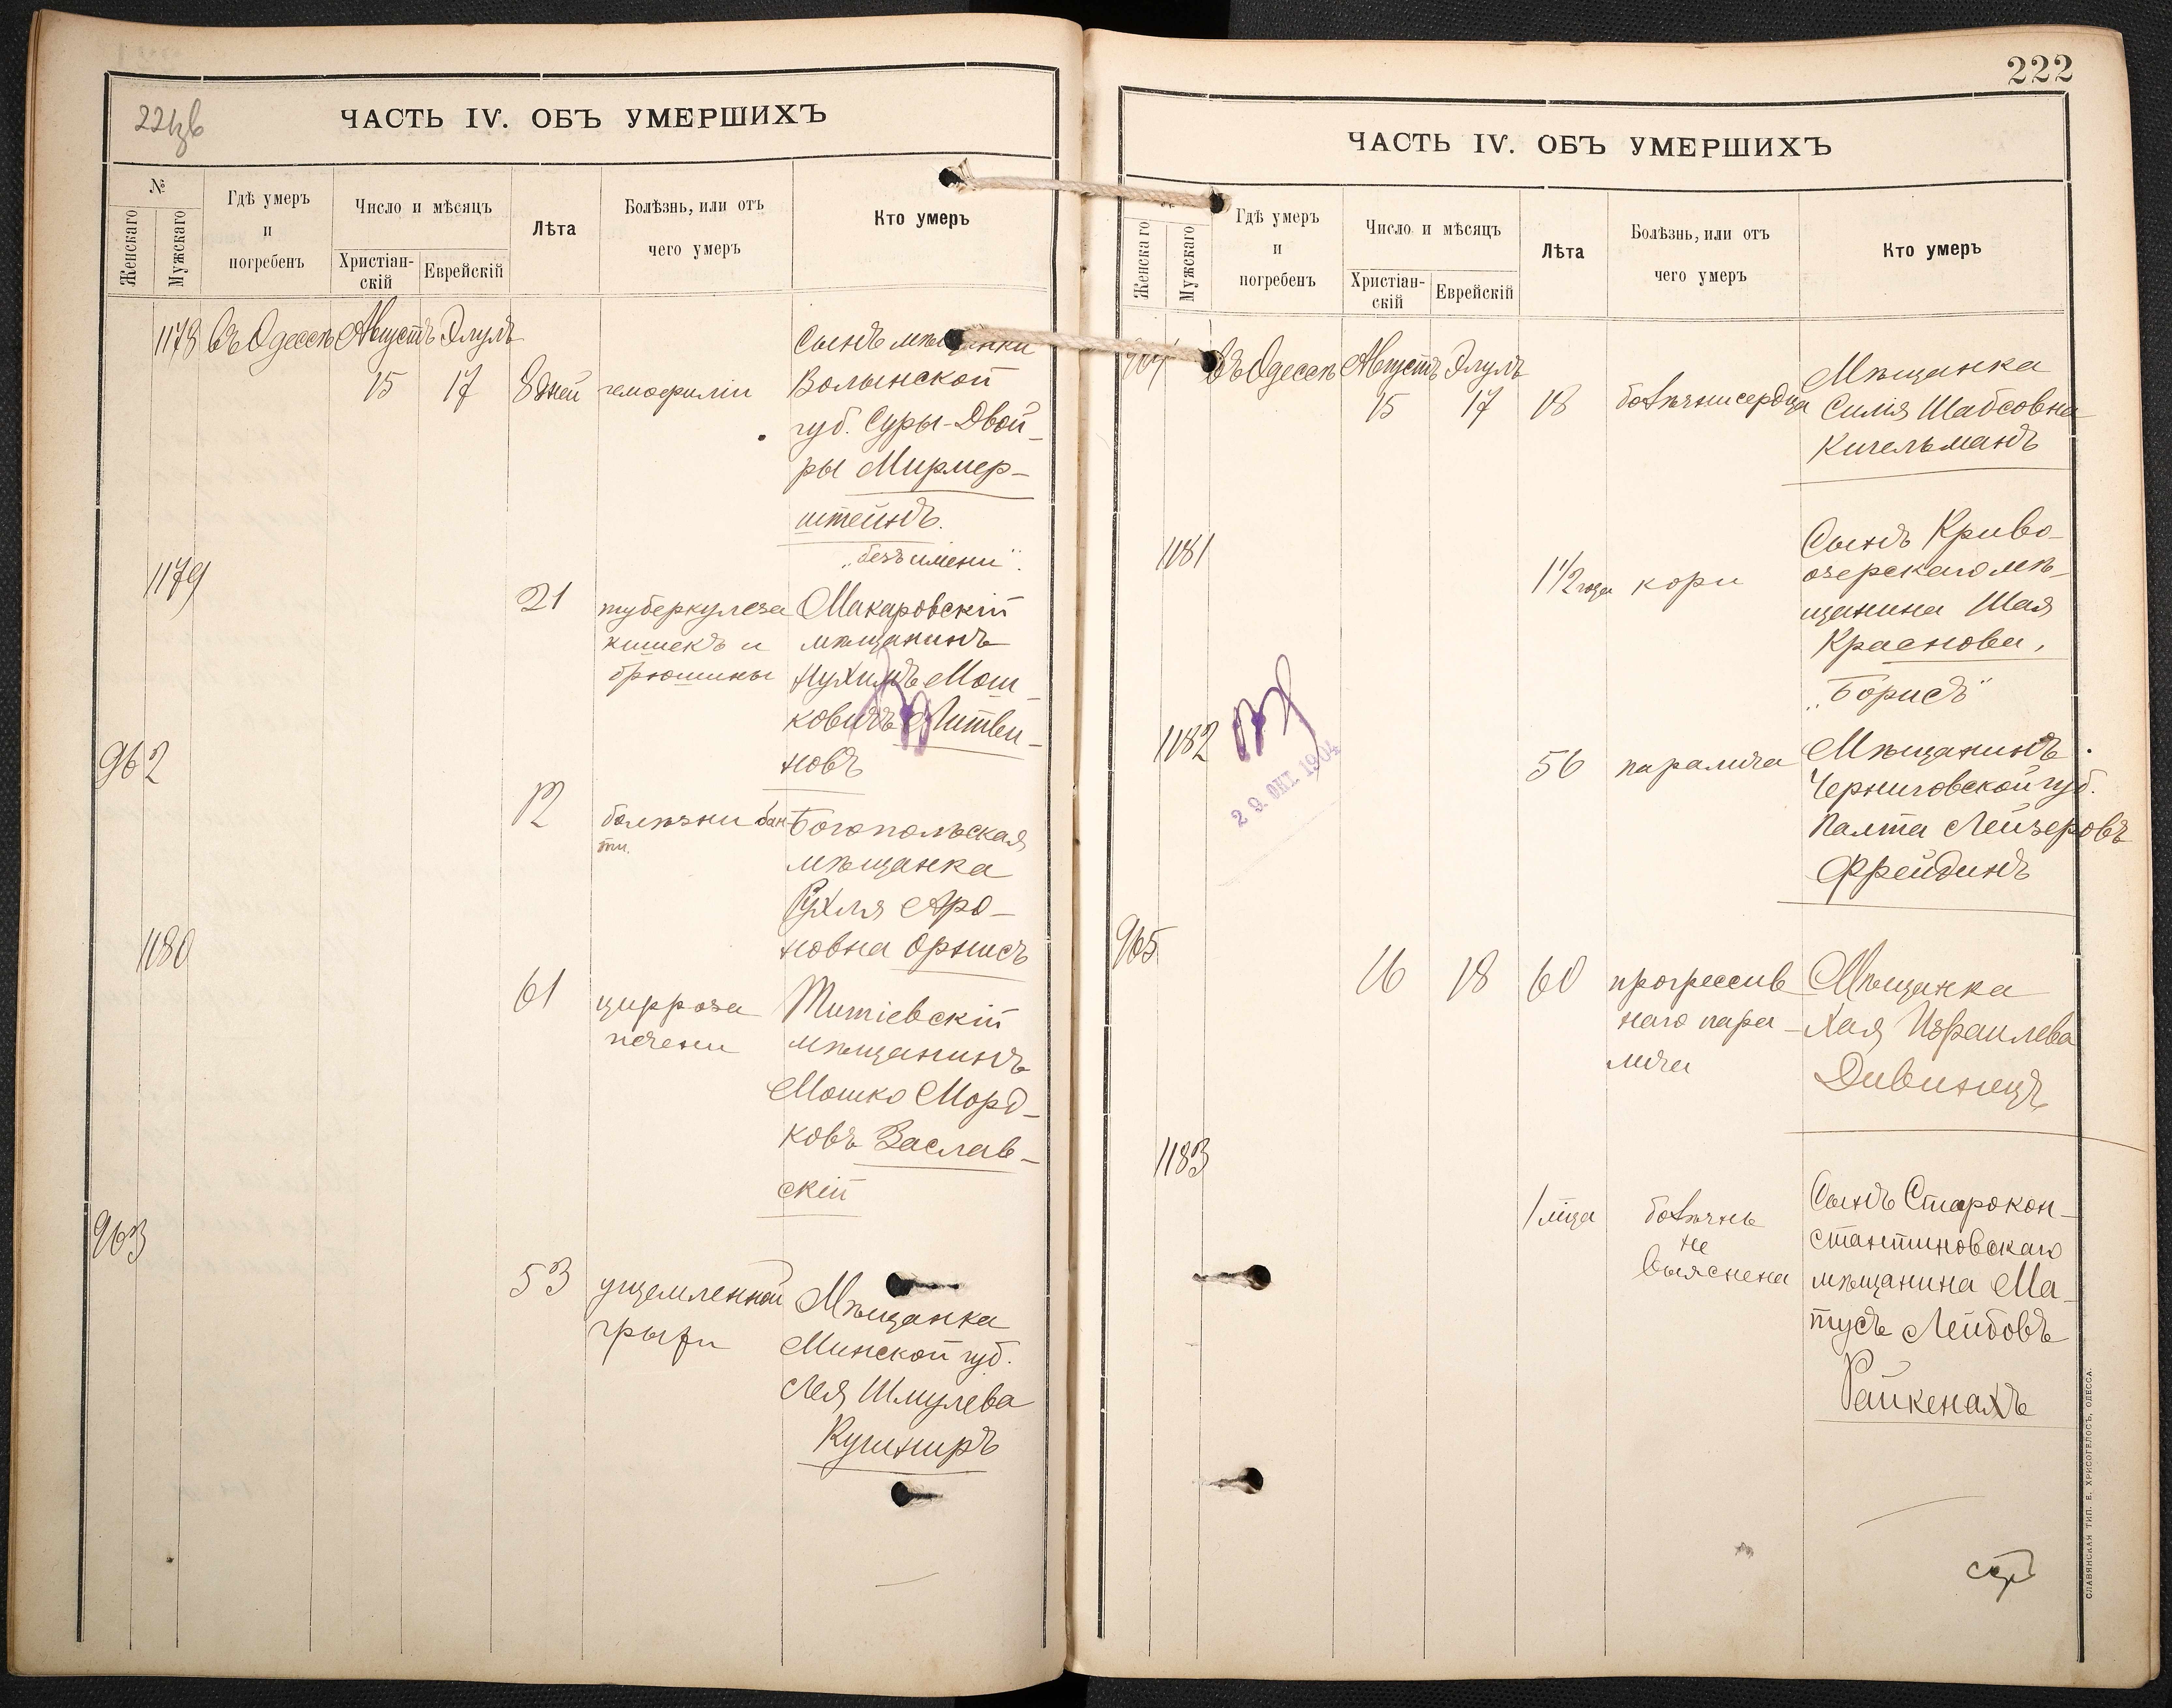 221зв
ЧАСТЬ IV. ОБЪ УМЕРШИХЪ
№
Женскаго
Мужскаго
Гдѣ умеръ
и
погребенъ
Число и мѣсяцъ
Христіан-
скій
Еврейскій
Лѣта
Болѣзнь, или отъ
чего умеръ
Кто умеръ
1178 Въ Одессѣ Августъ Элулъ
15 17 8 дней гемофиліи
Сынъ мѣщанки
Волынской
губ. Суры-Двой-
ры Мирмер-
штейнъ.
„безъ имени".
1179
21 туберкулеза
кишекъ и
брюшины
Макаровскій
мѣщанинъ
Нухимъ Мош-
ковичъ Литви-
новъ
962
12 болѣзни
Богопольская
мѣщанка
Рухля Аро-
новна Орнисъ
1180
61 цирроза
печени
Титіевскій
мѣщанинъ
Мошко Морд-
ковъ Заслав-
скій
963
53 ущемленной
грыжи
Мѣщанка
Минской губ.
Лея Шмулева
Кушниръ
222
ЧАСТЬ IV. ОБЪ УМЕРШИХЪ
Женскаго
Мужскаго
Гдѣ умеръ
и
погребенъ
Число и мѣсяцъ
Христіан-
скій
Еврейскій
Лѣта
Болѣзнь, или отъ
чего умеръ
Кто умеръ
964 Въ Одессѣ Августъ Элулъ
15 17 18 болѣзни сердца
Мѣщанка
Силія Шабсовна
Кигельманъ
1181
1 1/2 года кори
Сынъ Криво-
озерскаго мѣ-
щанина Шая
Краснова,
„Борисъ"
1182
29 ОКТ. 1904
56 паралича
Мѣщанинъ
Черниговской губ.
Палта Лейзеровъ
Фрейдинъ
965
16 18 60 прогрессив
наго пара-
лича
Мѣщанка
Хая Израилева
Дивинецъ
1183
1 мца болѣзнь
не
выяснена
Сынъ Старокон-
стантиновскаго
мѣщанина Ма-
тусъ Лейбовъ
Райкенахъ
СЛАВЯНСКАЯ ТИП. Е. ХРИСОГЕЛОСЪ, ОДЕССА.